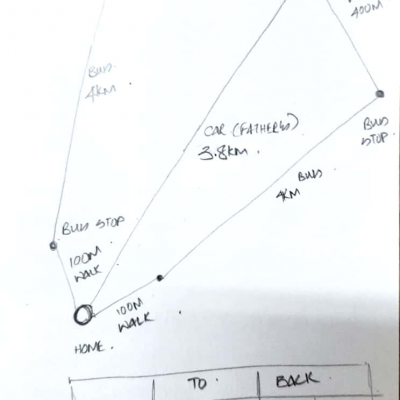 400M
BUS
4KM
BUS
STOP
CAR (FATHERS)
3.8KM.
BUS
4KM
BUS STOP
100M
WALK
100M
WALK
HOME.
TO BACK